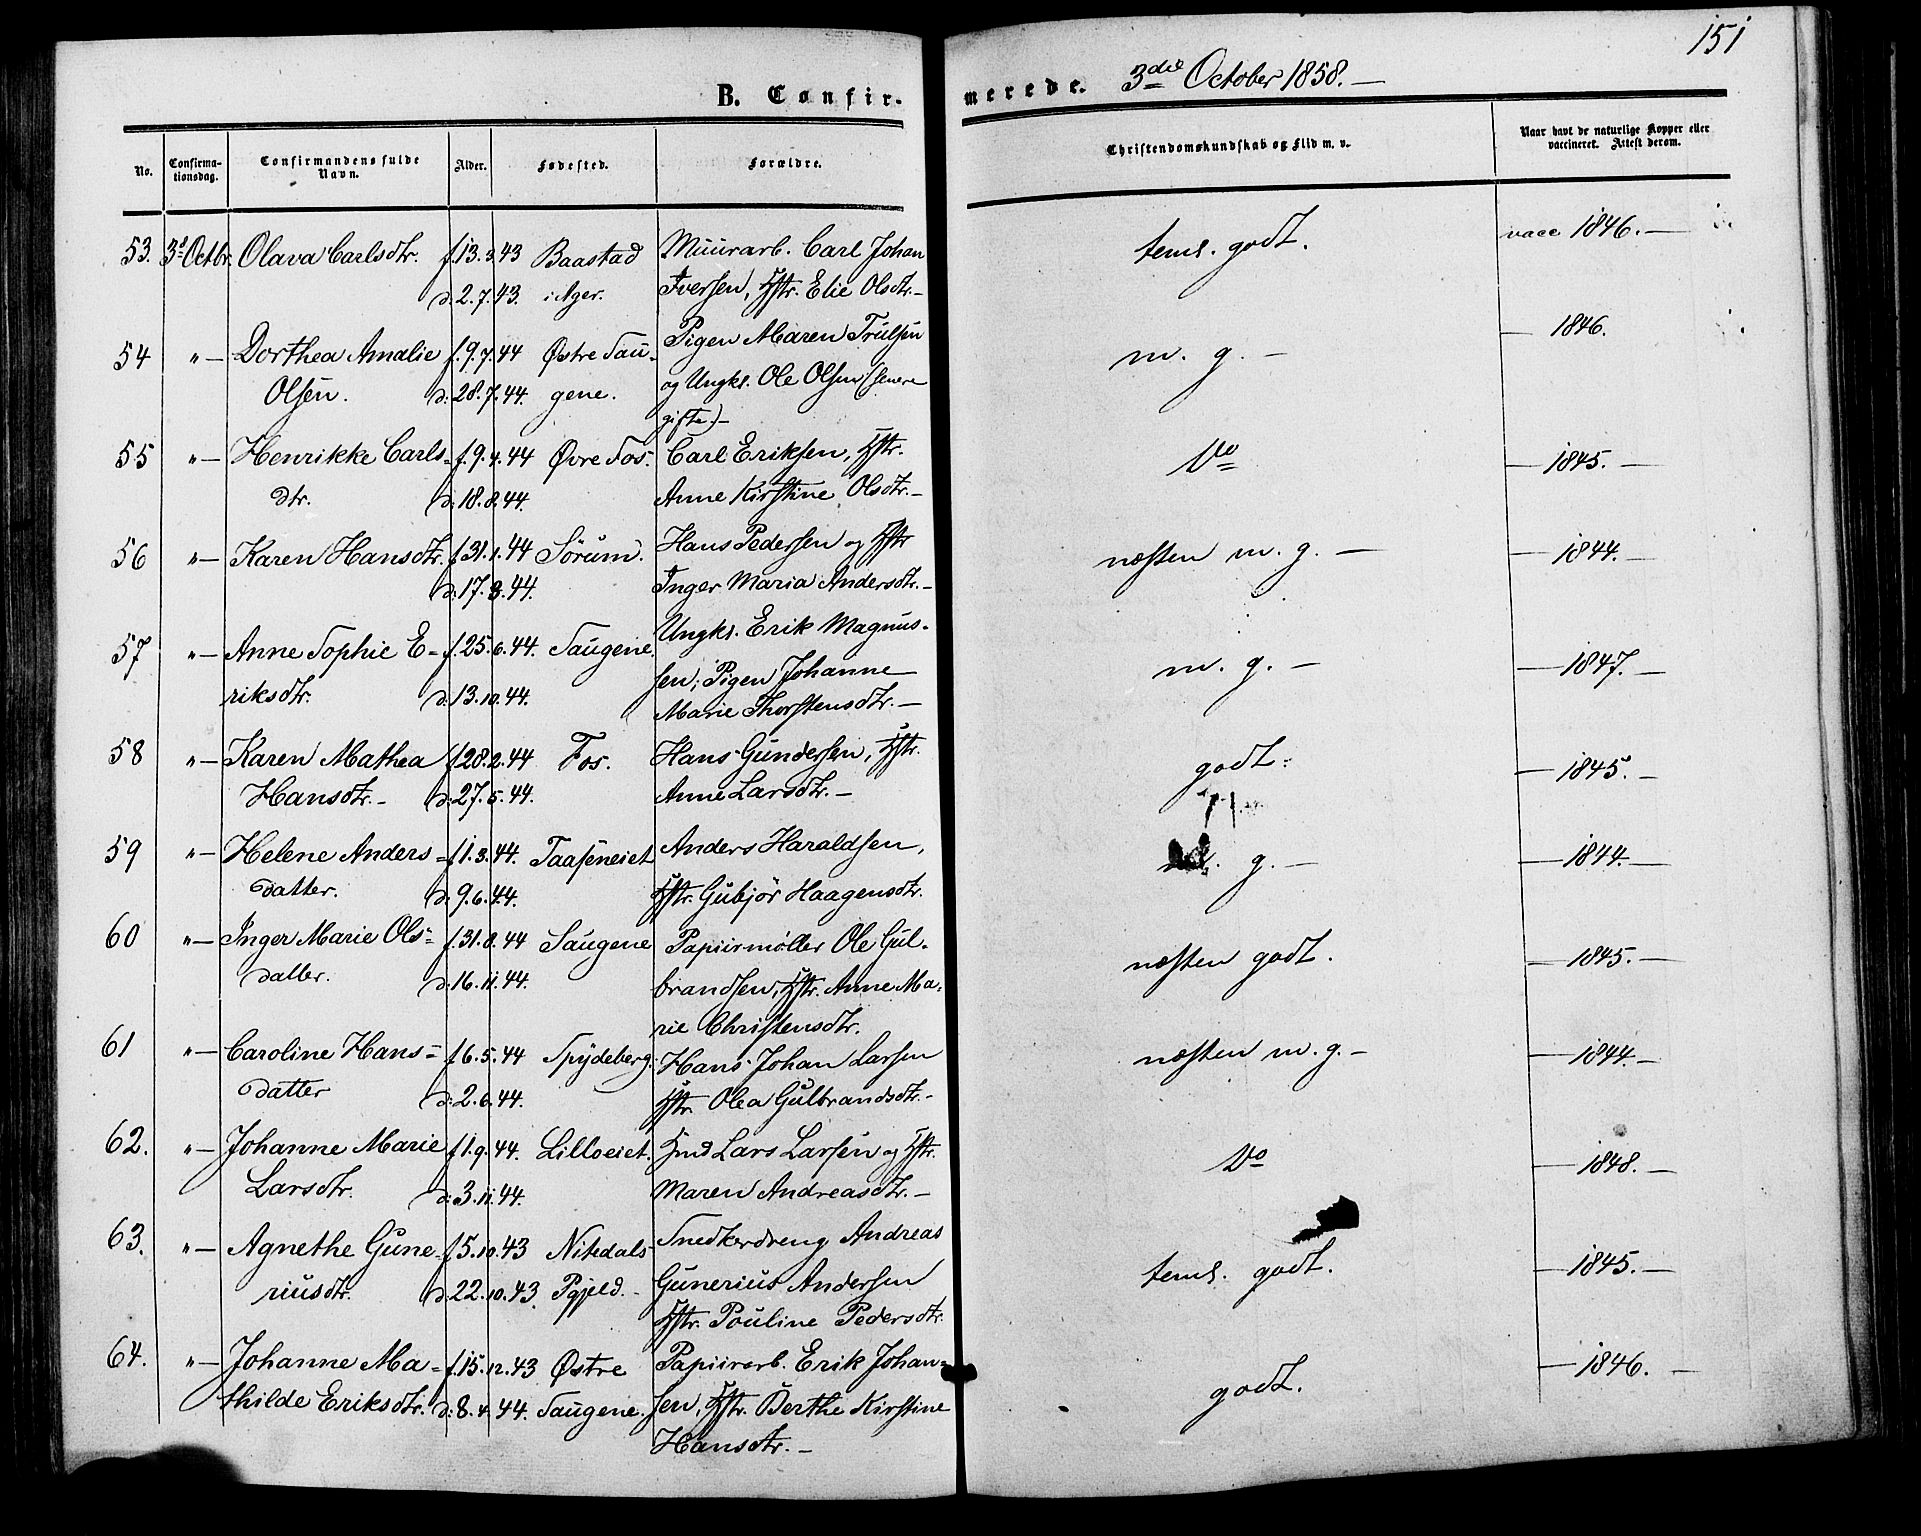 151
B. Confir-
merede. 3die October 1858. —
No.
Confirma-
tionsdag.
Confirmandens fulde
Navn.
Alder.
Fødested.
Forældre.
Christendomskundskab og Flid m. v.
Naar havt de naturlige Kopper eller
vaccineret. Attest derom.
53. 3d Octbr. Olava Carlsdtr. f. 13.3.43 Baastad Muurarb. Carl Johan teml. godt. vacc 1846. —
d: 2.7.43. i Ager. Iversen, Hstr. Elie Olsdtr. —
54 " — Dorthea Amalie f. 9.7.44 Østre Sau- Pigen Maren Trulsen m. g. — — 1846.
Olsen. d: 28.7.44. gene. og Ungkl. Ole Olsen (senere
gifte) —
55 " — Henrikke Carls- f. 9.4.44 Øvre Fos. Carl Eriksen, Hstr. Do — 1845. —
dtr. d: 18.8.44. Anne Kirstine Olsdtr. —
56 " — Karen Hansdtr. f. 31.1.44 Sörum. Hans Pedersen og Hstr næsten m. g. — — 1844. —
d: 17.3.44. Inger Maria Andersdtr. —
57 " — Anne Sophie E- f. 25.6.44. Saugene. Ungkl. Erik Magnus- m. g. — — 1847. —
riksdtr. d: 13.10.44. sen; Pigen Johanne
Marie Thorstensdtr. —
58 " — Karen Mathea f. 28.2.44 Fos. Hans Gundersen, Hstr. godt. — 1845. —
Hansdtr. — d: 27.5.44. Anne Larsdtr. —
59 " — Helene Anders- f. 1.3.44. Taaseneiet Anders Haraldsen, g. — — 1844. —
datter. d: 9.6.44. Hstr. Gubjör Haagensdtr.
60 " — Inger Marie Ols- f. 31.8.44 Saugene Papiirmøller Ole Gul- næsten godt. — 1845. —
datter. d: 16.11.44. brandsen, Hstr. Anne Ma-
rie Christensdtr.
61 " — Caroline Hans- f. 6.5.44 Spydeberg. Hans Johan Larsen næsten m. g. — — 1844. —
datter d: 2.6.44. Hstr. Olea Gulbrandsdtr. —
62. " — Johanne Marie f. 1.9.44. Lilloeiet. Hmd Lars Larsen og Hstr. Do — 1848. —
Larsdtr. d: 3.11.44. Maren Andreasdtr. —
63. " — Agnethe Gune- f. 5.10.43 Nitedals Snedkerdreng Andreas teml. godt. — 1845. —
riusdtr. d: 22.10.43. Pgjeld. — Gunerius Andersen
Hstr. Pouline Pedersdtr.
64. " — Johanne Ma- f. 15.12.43 Østre Papiirarb. Erik Johan- godt. — 1846. —
thilde Eriksdtr. d: 8.4.44. Saugene. sen, Hstr. Berthe Kirstine
Hansdtr. —